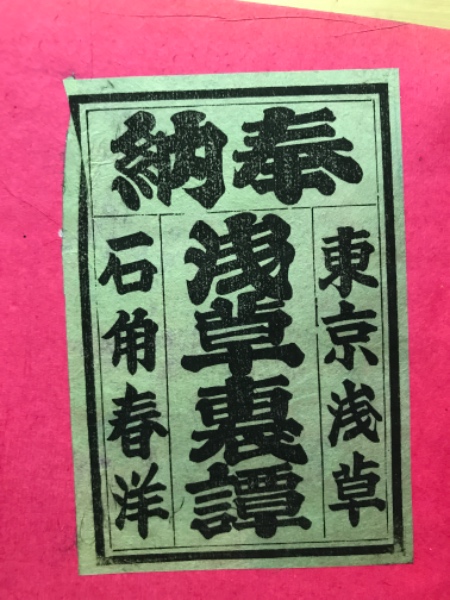 奉納
東京浅草
浅草裏譚
石角春洋